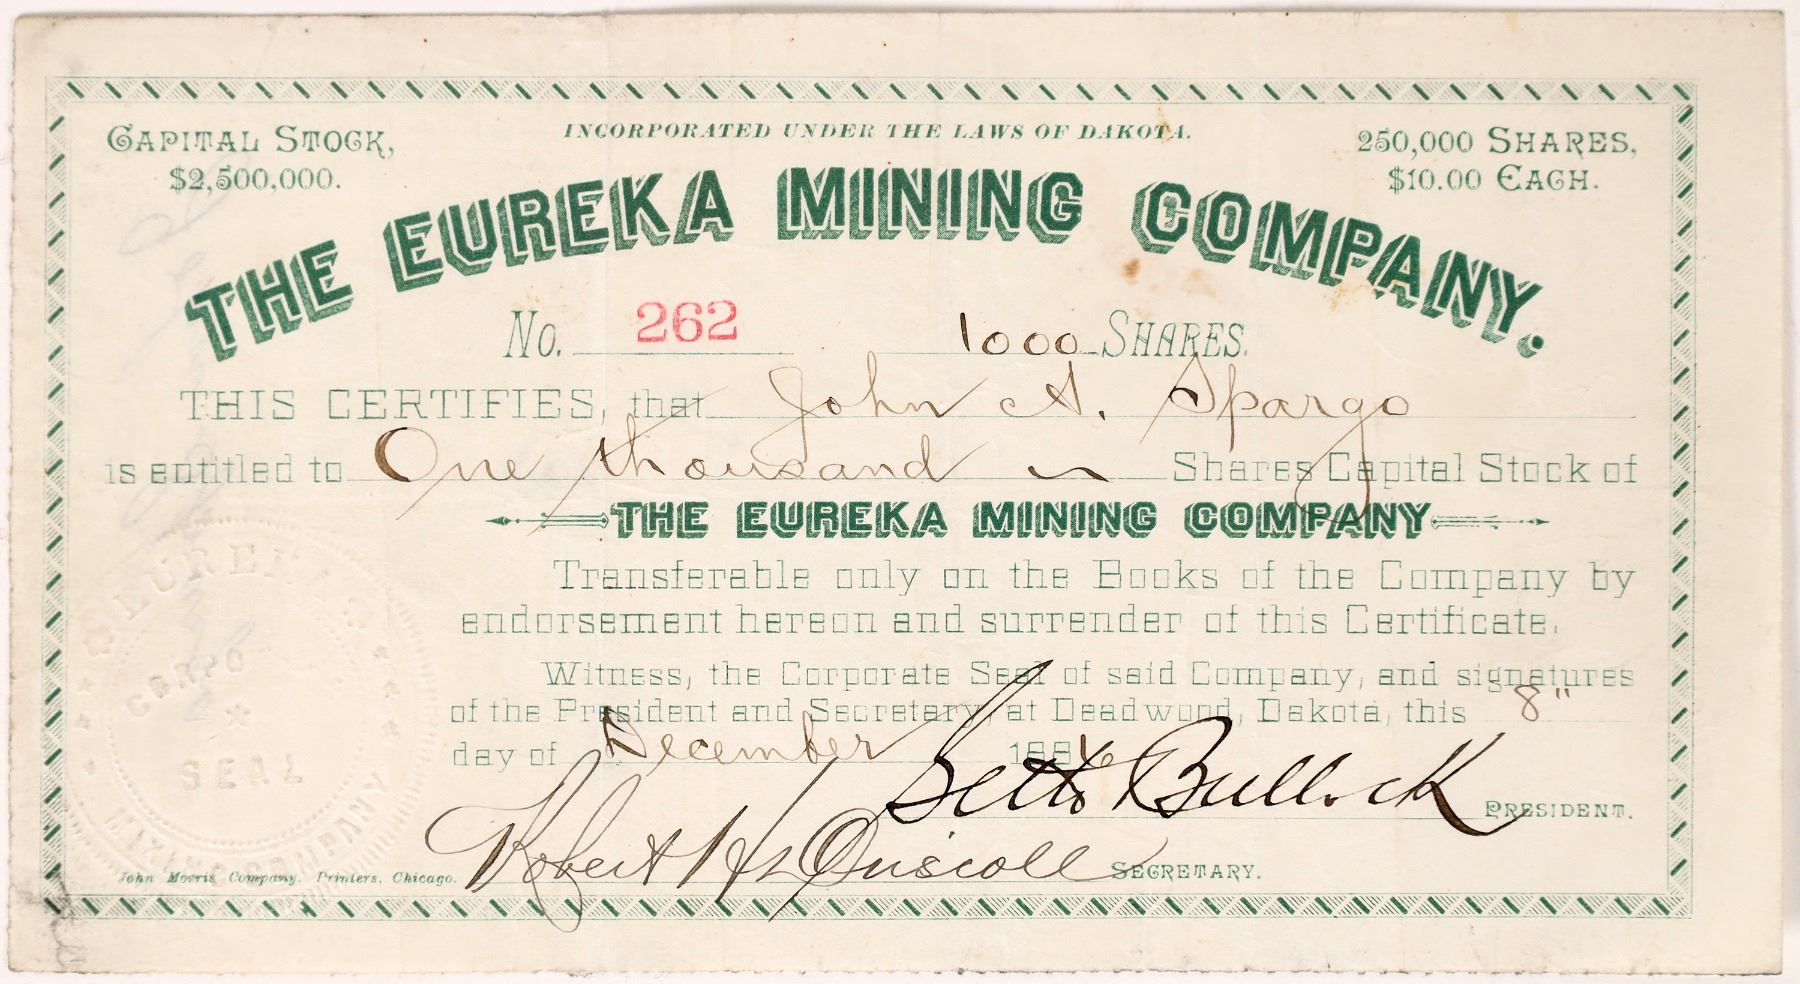 INCORPORATED UNDER THE LAWS OF DAKOTA.
CAPITAL STOCK,
$2,500,000.
250,000 SHARES,
$10.00 EACH.
THE EUREKA MINING COMPANY.
No. 262 1000 SHARES.
THIS CERTIFIES, that John A. Spargo
is entitled to One thousand Shares Capital Stock of
THE EUREKA MINING COMPANY
Transferable only on the Books of the Company by
endorsement hereon and surrender of this Certificate.
Witness, the Corporate Seal of said Company, and signatures
of the President and Secretary, at Deadwood, Dakota, this 8"
day of December 1886
Seth Bullock PRESIDENT.
Robert H Driscoll SECRETARY.
John Morris Company, Printers, Chicago.
EUREKA
CORPO
SEAL
MINING COMPANY